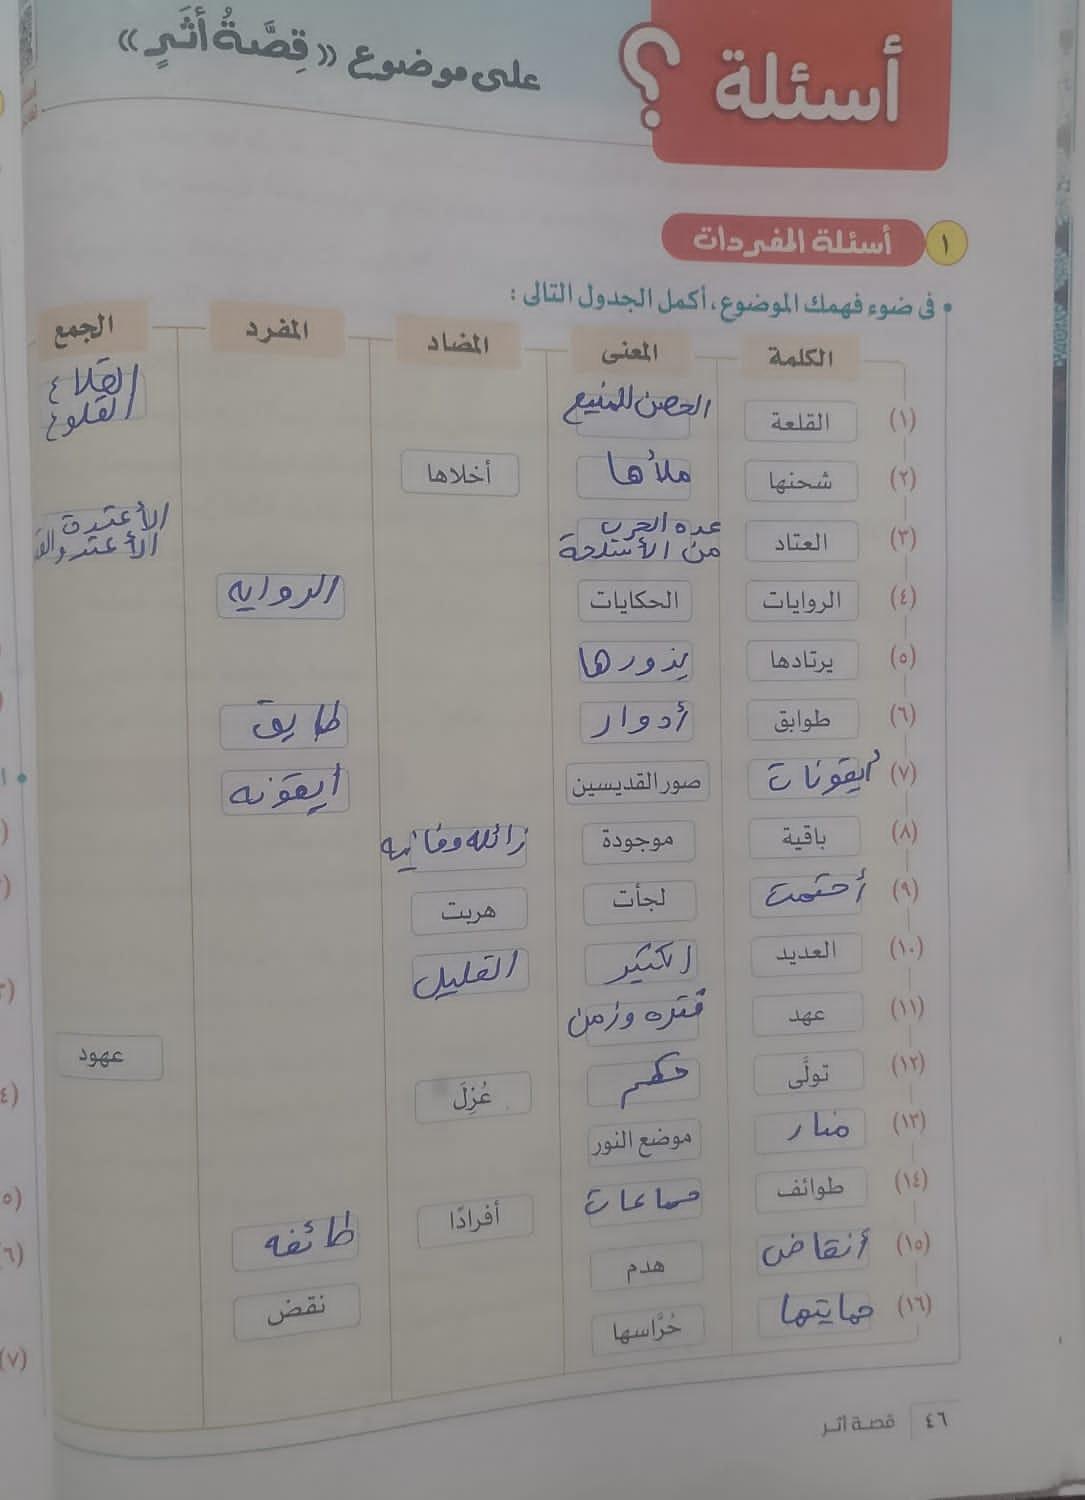 أسئلة ؟
على موضوع «قِصَّةُ أَثَرٍ»
١ أسئلة المفردات
• فى ضوء فهمك الموضوع، أكمل الجدول التالى :
الكلمة المعنى المضاد المفرد الجمع
(١) القلعة الحصن المنيع القلاع القلوع
(٢) شحنها ملأها أخلاها
(٣) العتاد عده الحرب من الأسلحة الأعتدة
(٤) الروايات الحكايات الروايه
(٥) يرتادها يزورها
(٦) طوابق أدوار طابق
(٧) أيقونات صور القديسين أيقونه
(٨) باقية موجودة زائله وفانيه
(٩) أحتمت لجأت هربت
(١٠) العديد الكثير القليل
(١١) عهد فتره وزمن عهود
(١٢) تولَّى حكم عُزِلَ
(١٣) منار موضع النور
(١٤) طوائف جماعات أفرادًا طائفه
(١٥) أنقاض هدم نقض
(١٦) حمايتها حُرَّاسها
٤٦ قصة أثر